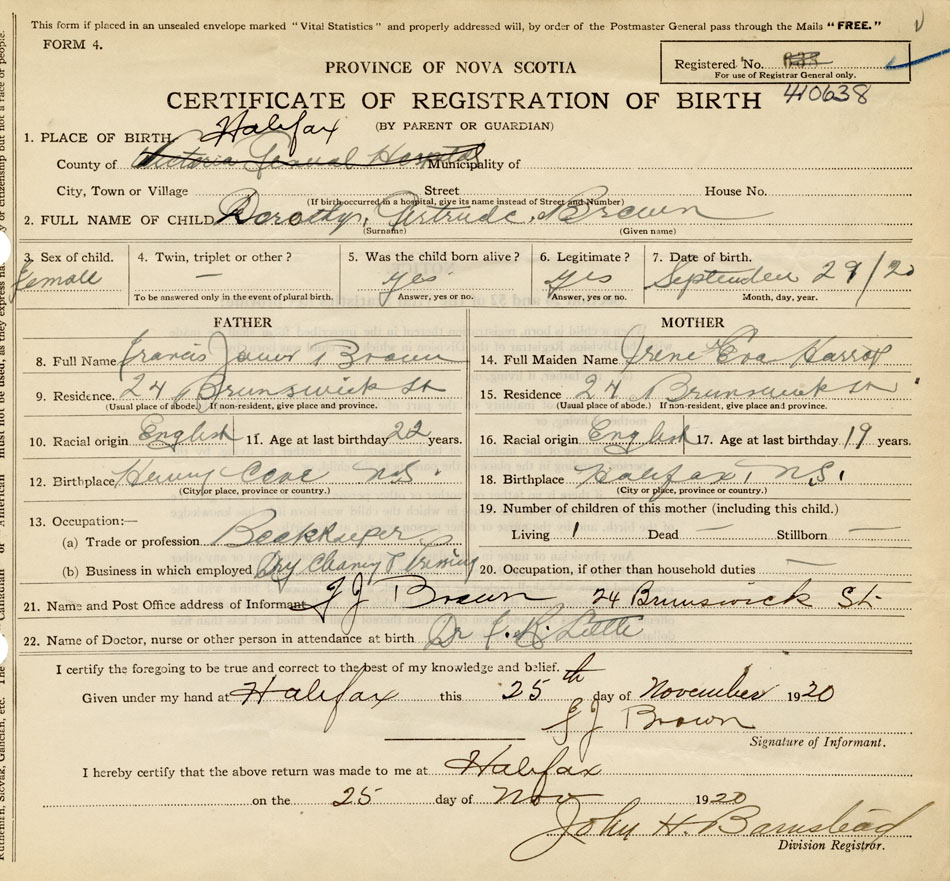 This form if placed in an unsealed envelope marked "Vital Statistics" and properly addressed will, by order of the Postmaster General pass through the Mails "FREE."
FORM 4.
Registered No.
For use of Registrar General only.
410638
PROVINCE OF NOVA SCOTIA
CERTIFICATE OF REGISTRATION OF BIRTH
(BY PARENT OR GUARDIAN)
1. PLACE OF BIRTH Halifax
County of Victoria General Hospital Municipality of
City, Town or Village Street House No.
(If birth occurred in a hospital, give its name instead of Street and Number)
2. FULL NAME OF CHILD Dorothy, Gertrude, Brown
(Surname) (Given name)
3. Sex of child. 4. Twin, triplet or other? 5. Was the child born alive? 6. Legitimate? 7. Date of birth.
Female — yes yes September 29/20
To be answered only in the event of plural birth. Answer, yes or no. Answer, yes or no. Month, day, year.
FATHER MOTHER
8. Full Name Francis James Brown 14. Full Maiden Name Irene Eva
9. Residence. 24 Brunswick St 15. Residence 24 Brunswick St
(Usual place of abode.) If non-resident, give place and province. (Usual place of abode.) If non-resident, give place and province.
10. Racial origin English 11. Age at last birthday 22 years. 16. Racial origin English 17. Age at last birthday 19 years.
12. Birthplace Cove N.S. 18. Birthplace Halifax, N.S.
(City or place, province or country.) (City or place, province or country.)
13. Occupation:— 19. Number of children of this mother (including this child.)
(a) Trade or profession Bookkeeper Living 1 Dead — Stillborn —
(b) Business in which employed Dry 20. Occupation, if other than household duties —
21. Name and Post Office address of Informant F J Brown 24 Brunswick St.
22. Name of Doctor, nurse or other person in attendance at birth Dr Little
I certify the foregoing to be true and correct to the best of my knowledge and belief.
Given under my hand at Halifax this 25th day of November 1920
F J Brown
Signature of Informant.
I hereby certify that the above return was made to me at Halifax
on the 25 day of Nov 1920
John H. Barnstead
Division Registrar.